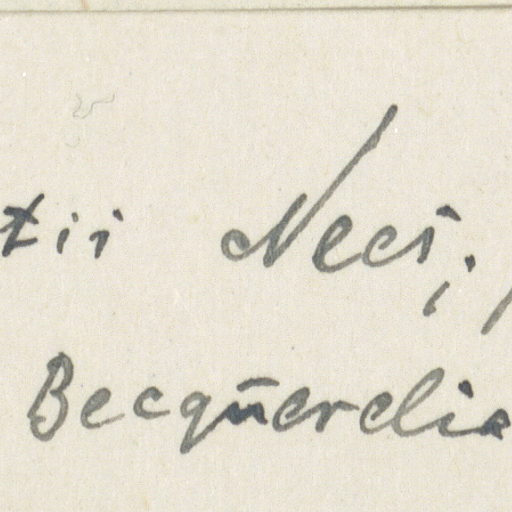 tii Nees;
Becquerelia